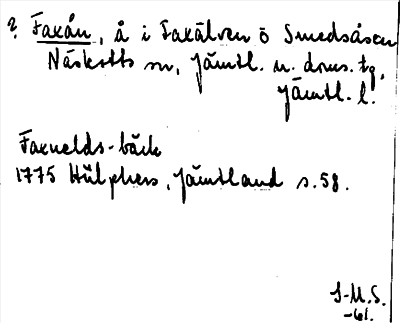 ? Faxån, å i Faxälven ö Smedsåsen
Näskotts sn, Jämtl. n. doms. tg,
Jämtl. l.
Faxnelds-bäck
1775 Hülphers, Jämtland s. 58.
S-M.S.
-61.